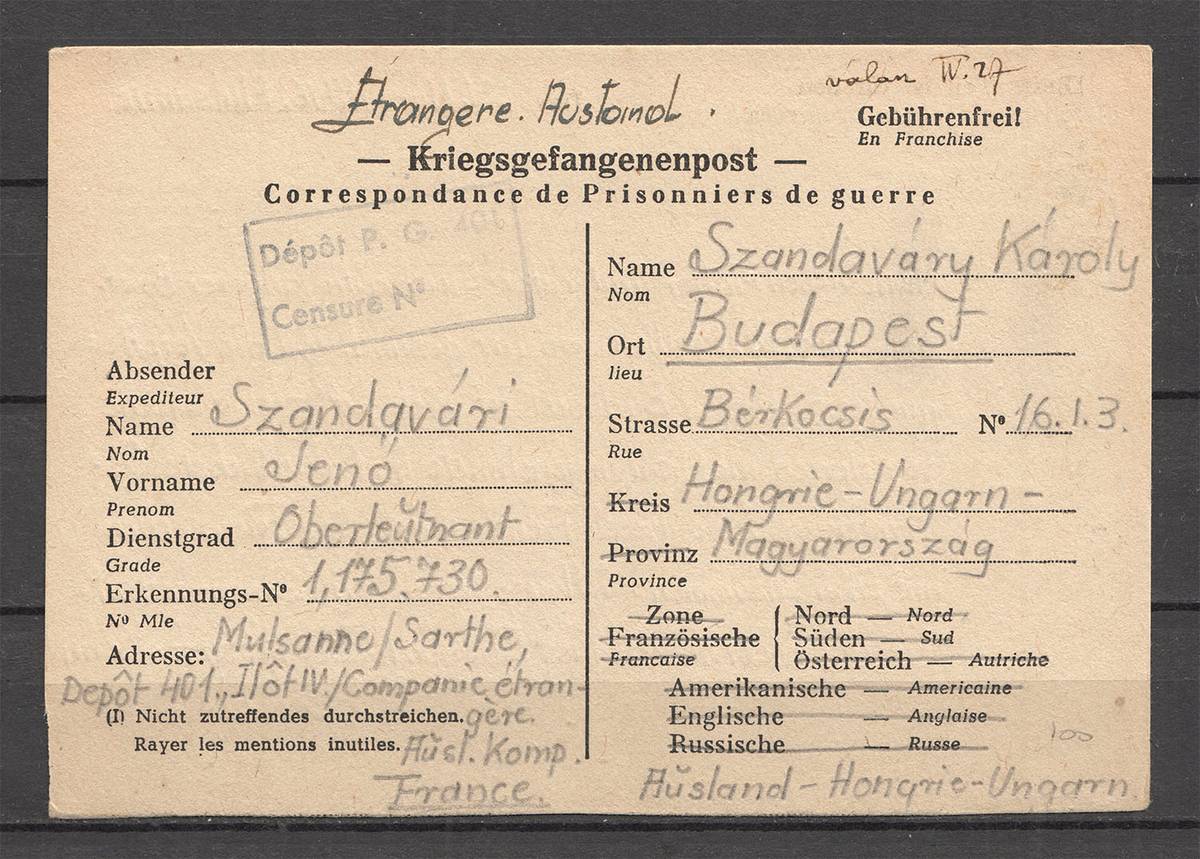 Étrangere. Ausland.
válan IV. 27
Gebührenfrei!
En Franchise
— Kriegsgefangenenpost —
Correspondance de Prisonniers de guerre
Dépôt P. G. 401
Censure Nº
Absender
Expediteur
Name Szandavári
Nom
Vorname Jenő
Prenom
Dienstgrad Oberleŭtnant
Grade
Erkennungs-Nº 1,175.730.
Nº Mle
Adresse: Mulsanne/Sarthe,
Depôt 401., Ilôt IV./Companie étran-
(I) Nicht zutreffendes durchstreichen. gère.
Rayer les mentions inutiles. Aŭsl. Komp.
France.
Name Szandaváry Károly
Nom
Ort Budapest
lieu
Strasse Bérkocsis Nº 16.I.3.
Rue
Kreis Hongrie-Ungarn-
Provinz Magyarország
Province
Zone
Französische
Francaise
Nord — Nord
Süden — Sud
Österreich — Autriche
Amerikanische — Americaine
Englische — Anglaise
Russische — Russe
100
Aŭsland-Hongrie-Ungarn